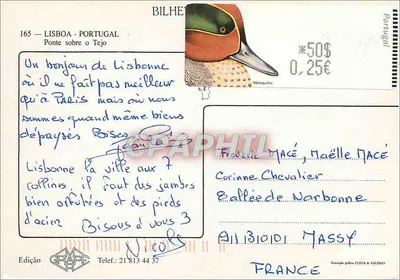 BILHE
165 — LISBOA - PORTUGAL
Ponte sobre o Tejo
Portugal
*50$
0,25€
Un bonjour de Lisbonne
où il ne fait pas meilleur
qu'à PARIS mais où nous
sommes quand même biens
dépaysés Bises
Lisbonne la ville aux 7
collines, il faut des jambes
bien et des pieds
d'acier. Bisous à vous 3
Nicole
CPAPHIL
Frédéric MACÉ, Maëlle MACÉ
Corinne Chevalier
8 allée de Narbonne
911310101 MASSY
FRANCE
Edição
Telef.: 21 813 44 37